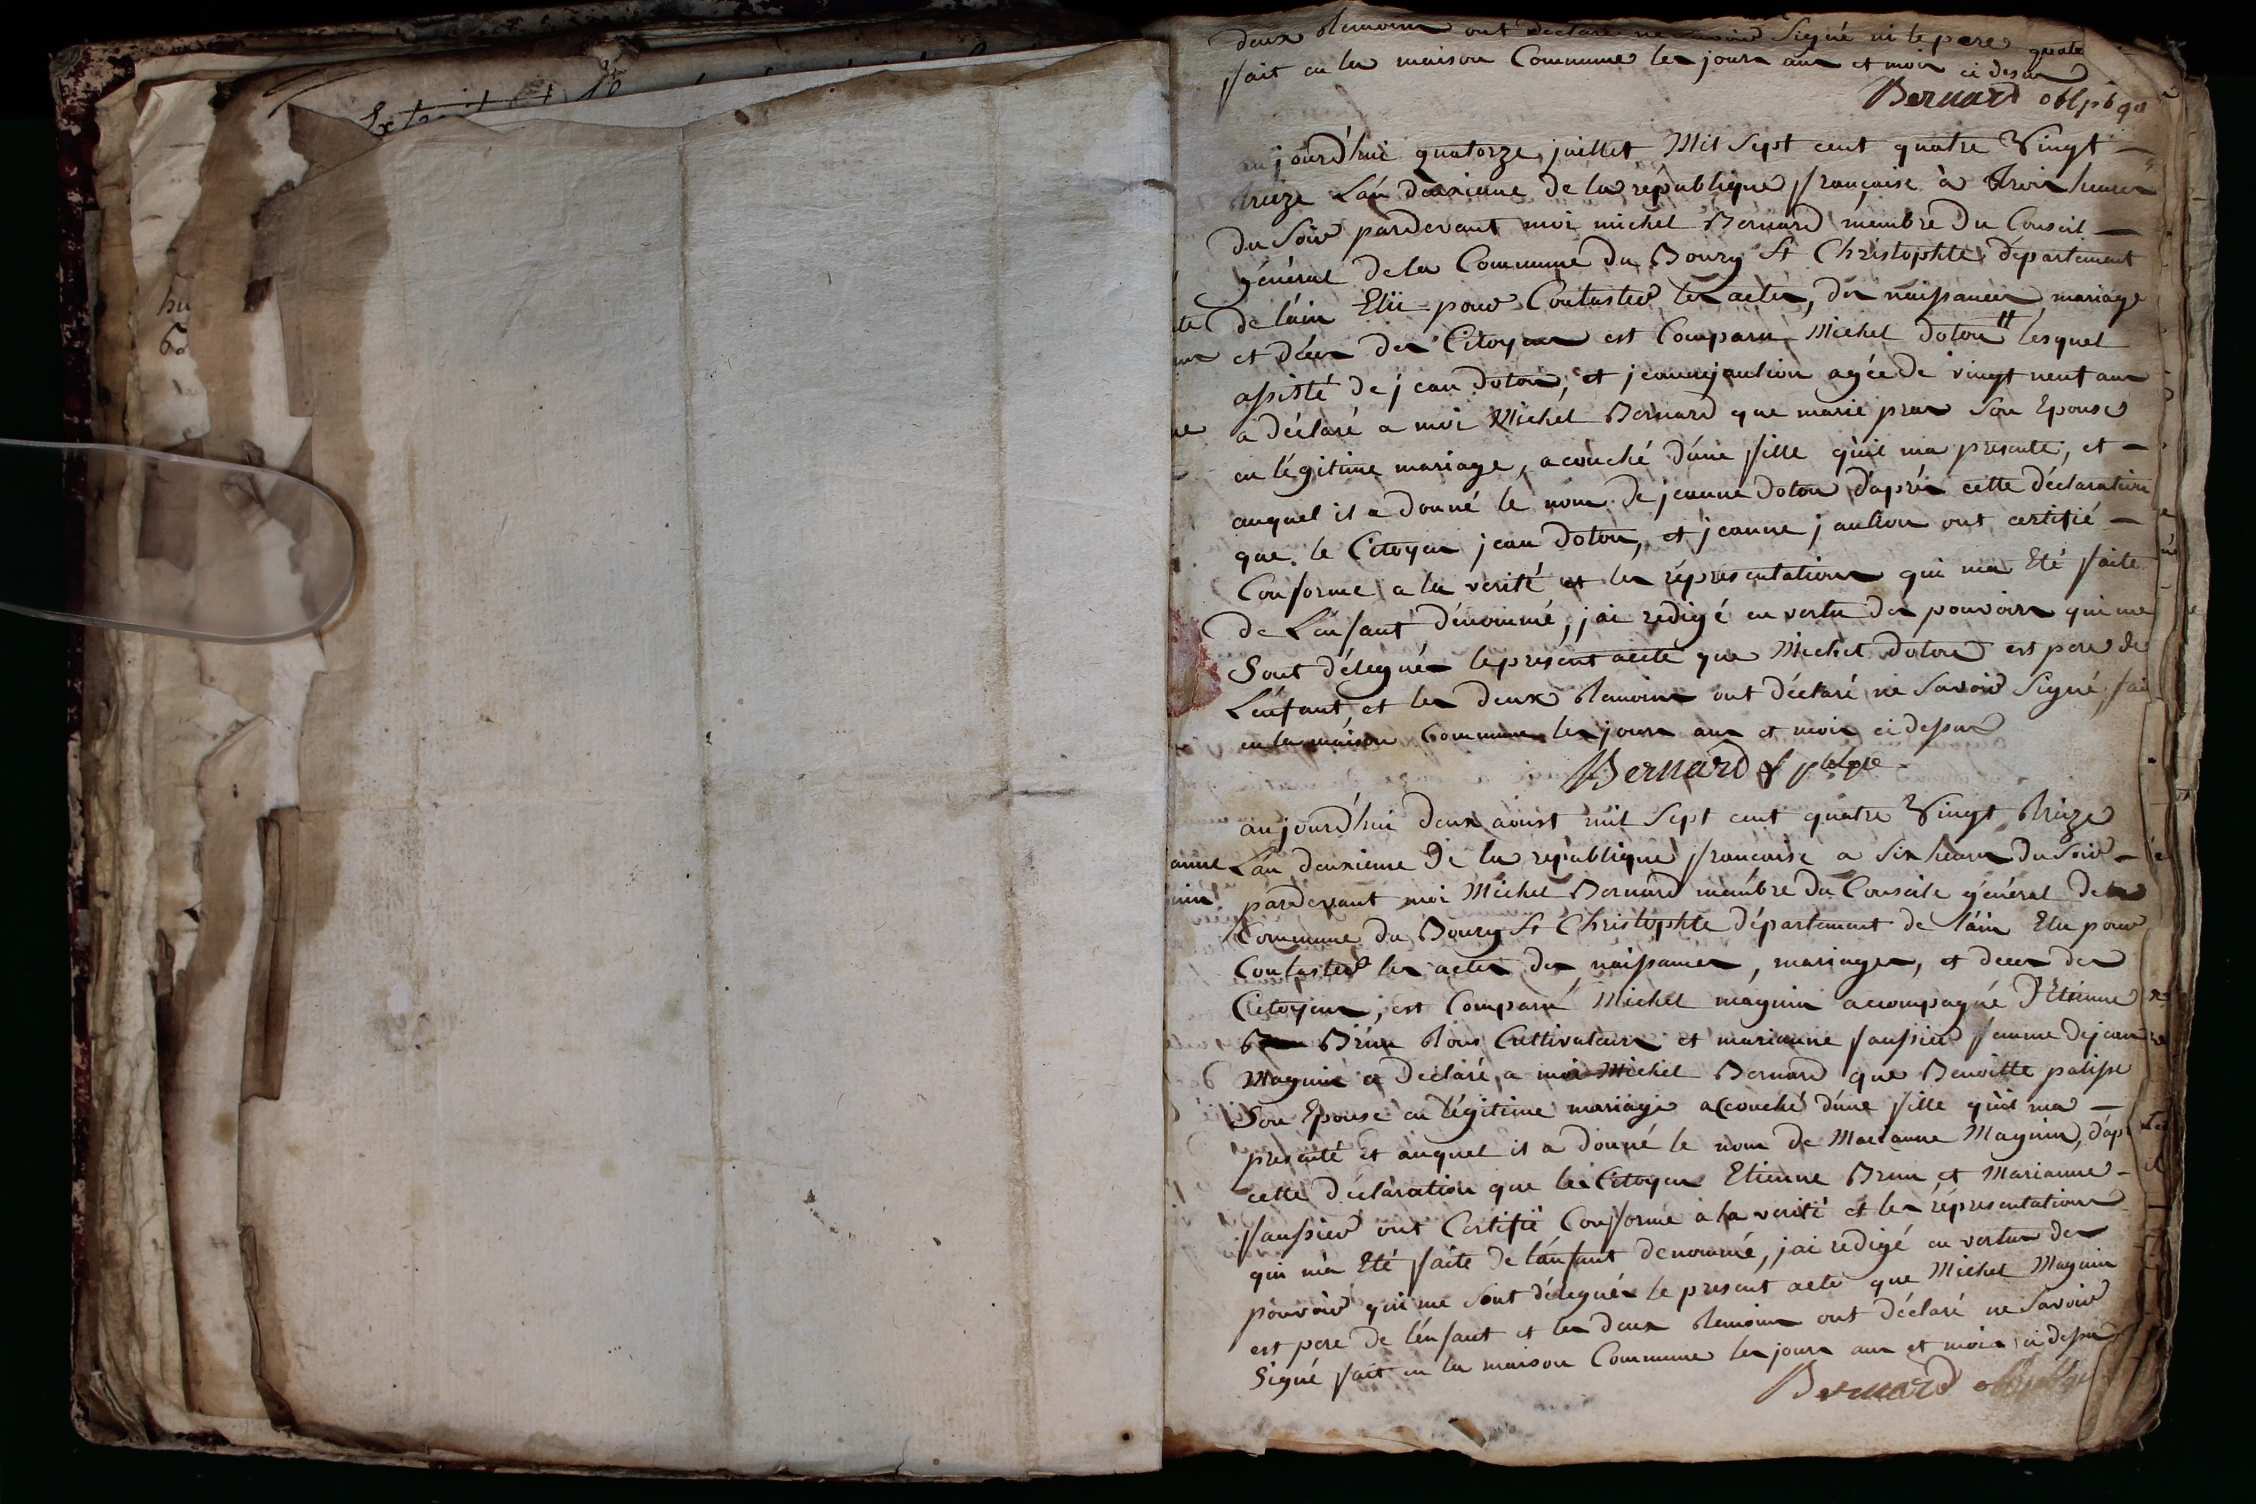 deux temoins ont declaré ne Signé ni le pere
fait en la maison Commune les jours ans et mois ci desus
Bernard
aujourd'hui quatorze juillet Mil Sept cent quatre Vingt —
treize L'an deuxieme de la république française à trois heures
du Soir pardevant moi michel Bernard membre du Conseil —
général de la Commune du Bourg St Christophle département
de l'ain Elü pour Contaster les actes, des naissances mariage
et décès des Citoyens est Comparu Michel doton lesquel
assisté de jean doton, et jeanne jaulion agée de vingt neuf ans
a déclaré a moi Michel Bernard que marie pras Son Epouse
en légitime mariage, acouché d'une fille qu'il ma presenté, et —
auquel il a donné le nom de jeanne doton d'après cette déclaration
que le Citoyen jean doton, et jeanne jaulion ont certifié —
Conforme a la verité et les répresentations qui ma Eté faite
de L'enfant dénommé, j'ai redigé en vertu des pouvoirs qui me
Sont délegués le present acte que Michel doton est pere de
L'enfant et les deux temoins ont déclaré ne Savoir Signé, fai
en la maison Commune les jours ans et mois ci dessus
Bernard
aujourd'hui deux aoust mil Sept cent quatre Vingt treize
L'an deuxieme de la république françaisse a Six heures du Soir —
pardevant moi Michel Bernard membre du Conseile général de la
Commune du Bourg St Christophle département de l'ain Elu pour
Contaster les actes des naissances, mariages, et deces des
Citoyens, est Comparu Michel magnin accompagné d'Etienne
Brun tous Cultivateurs et marianne faussier femme de jean
Magnin a declaré a moi Michel Bernard que Benoitte palisse
Son Epouse en légitime mariage accouché d'une fille qu'il ma —
presenté et auquel il a donné le nom de Marianne Magnin, d'apr
cette déclaration que les Citoyens Etienne Brun et Marianne —
faussier ont Certifié Conforme à la verité et les répresentations
qui m'a Eté faite de l'enfant denommé, j'ai redigé en vertu des
pouvoir qui me Sont délegués le present acte que Michel Magnin
est pere de l'enfant et les deux temoins ont déclaré ne Savoir
Signé fait en la maison Commune les jours ans et mois ci dessus
Bernard